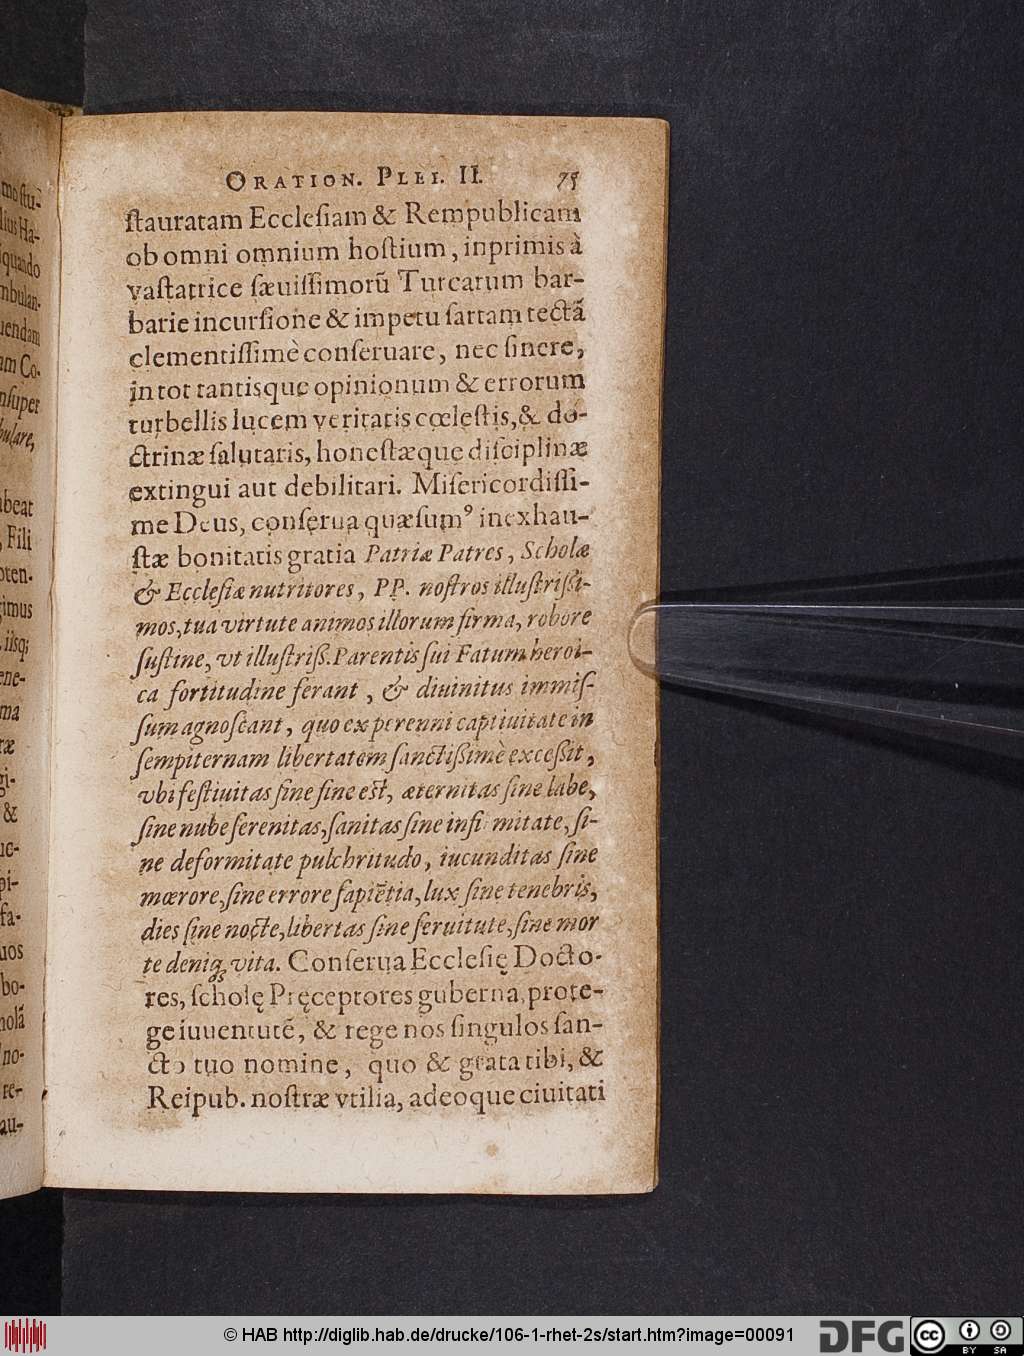 mo stū-
lius Ha-
iquando
mbulan-
uendam
am Co-
nsuper
bulare,
abeat
, Fili
oten-
gimus
, iisq;
ene-
ma
ræ
gi-
&
uc-
pi-
fa-
uos
bo-
nolā
no-
re-
au-
ORATION. PLEI. II. 75
ſtauratam Eccleſiam & Rempublicam
ob omni omnium hoſtium, inprimis à
vaſtatrice ſæuiſſimorū Turcarum bar-
barie incurſione & impetu ſartam tectā
clementiſſimè conſeruare, nec ſinere,
in tot tantisque opinionum & errorum
turbellis lucem veritatis cœleſtis, & do-
ctrinæ ſalutaris, honeſtæque diſciplinæ
extingui aut debilitari. Miſericordiſſi-
me Deus, conſerua quæſumꝰ inexhau-
ſtæ bonitatis gratia Patriæ Patres, Scholæ
& Eccleſiæ nutritores, PP. noſtros illuſtriſſi-
mos, tua virtute animos illorum firma, robore
ſuſtine, vt illuſtriß. Parentis ſui Fatum heroi-
ca fortitudine ferant, & diuinitus immiſ-
ſum agnoſcant, quo ex perenni captiuitate in
ſempiternam libertatem ſanctißimè exceßit,
vbi feſtiuitas ſine fine eſt, æternitas ſine labe,
ſine nube ſerenitas, ſanitas ſine infi mitate, ſi-
ne deformitate pulchritudo, iucunditas ſine
mœrore, ſine errore ſapiētia, lux ſine tenebris,
dies ſine nocte, libertas ſine ſeruitute, ſine mor
te deniq́; vita. Conſerua Eccleſię Docto-
res, ſcholę Pręceptores guberna, prote-
ge iuuentutē, & rege nos ſingulos ſan-
cto tuo nomine, quo & grata tibi, &
Reipub. noſtræ vtilia, adeoque ciuitati
© HAB http://diglib.hab.de/drucke/106-1-rhet-2s/start.htm?image=00091
DFG
cc
BY SA